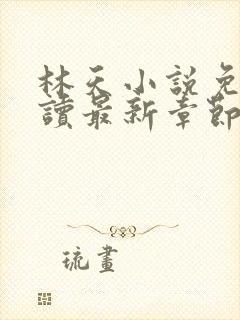 林天小說免
讀最新章節
琉畫